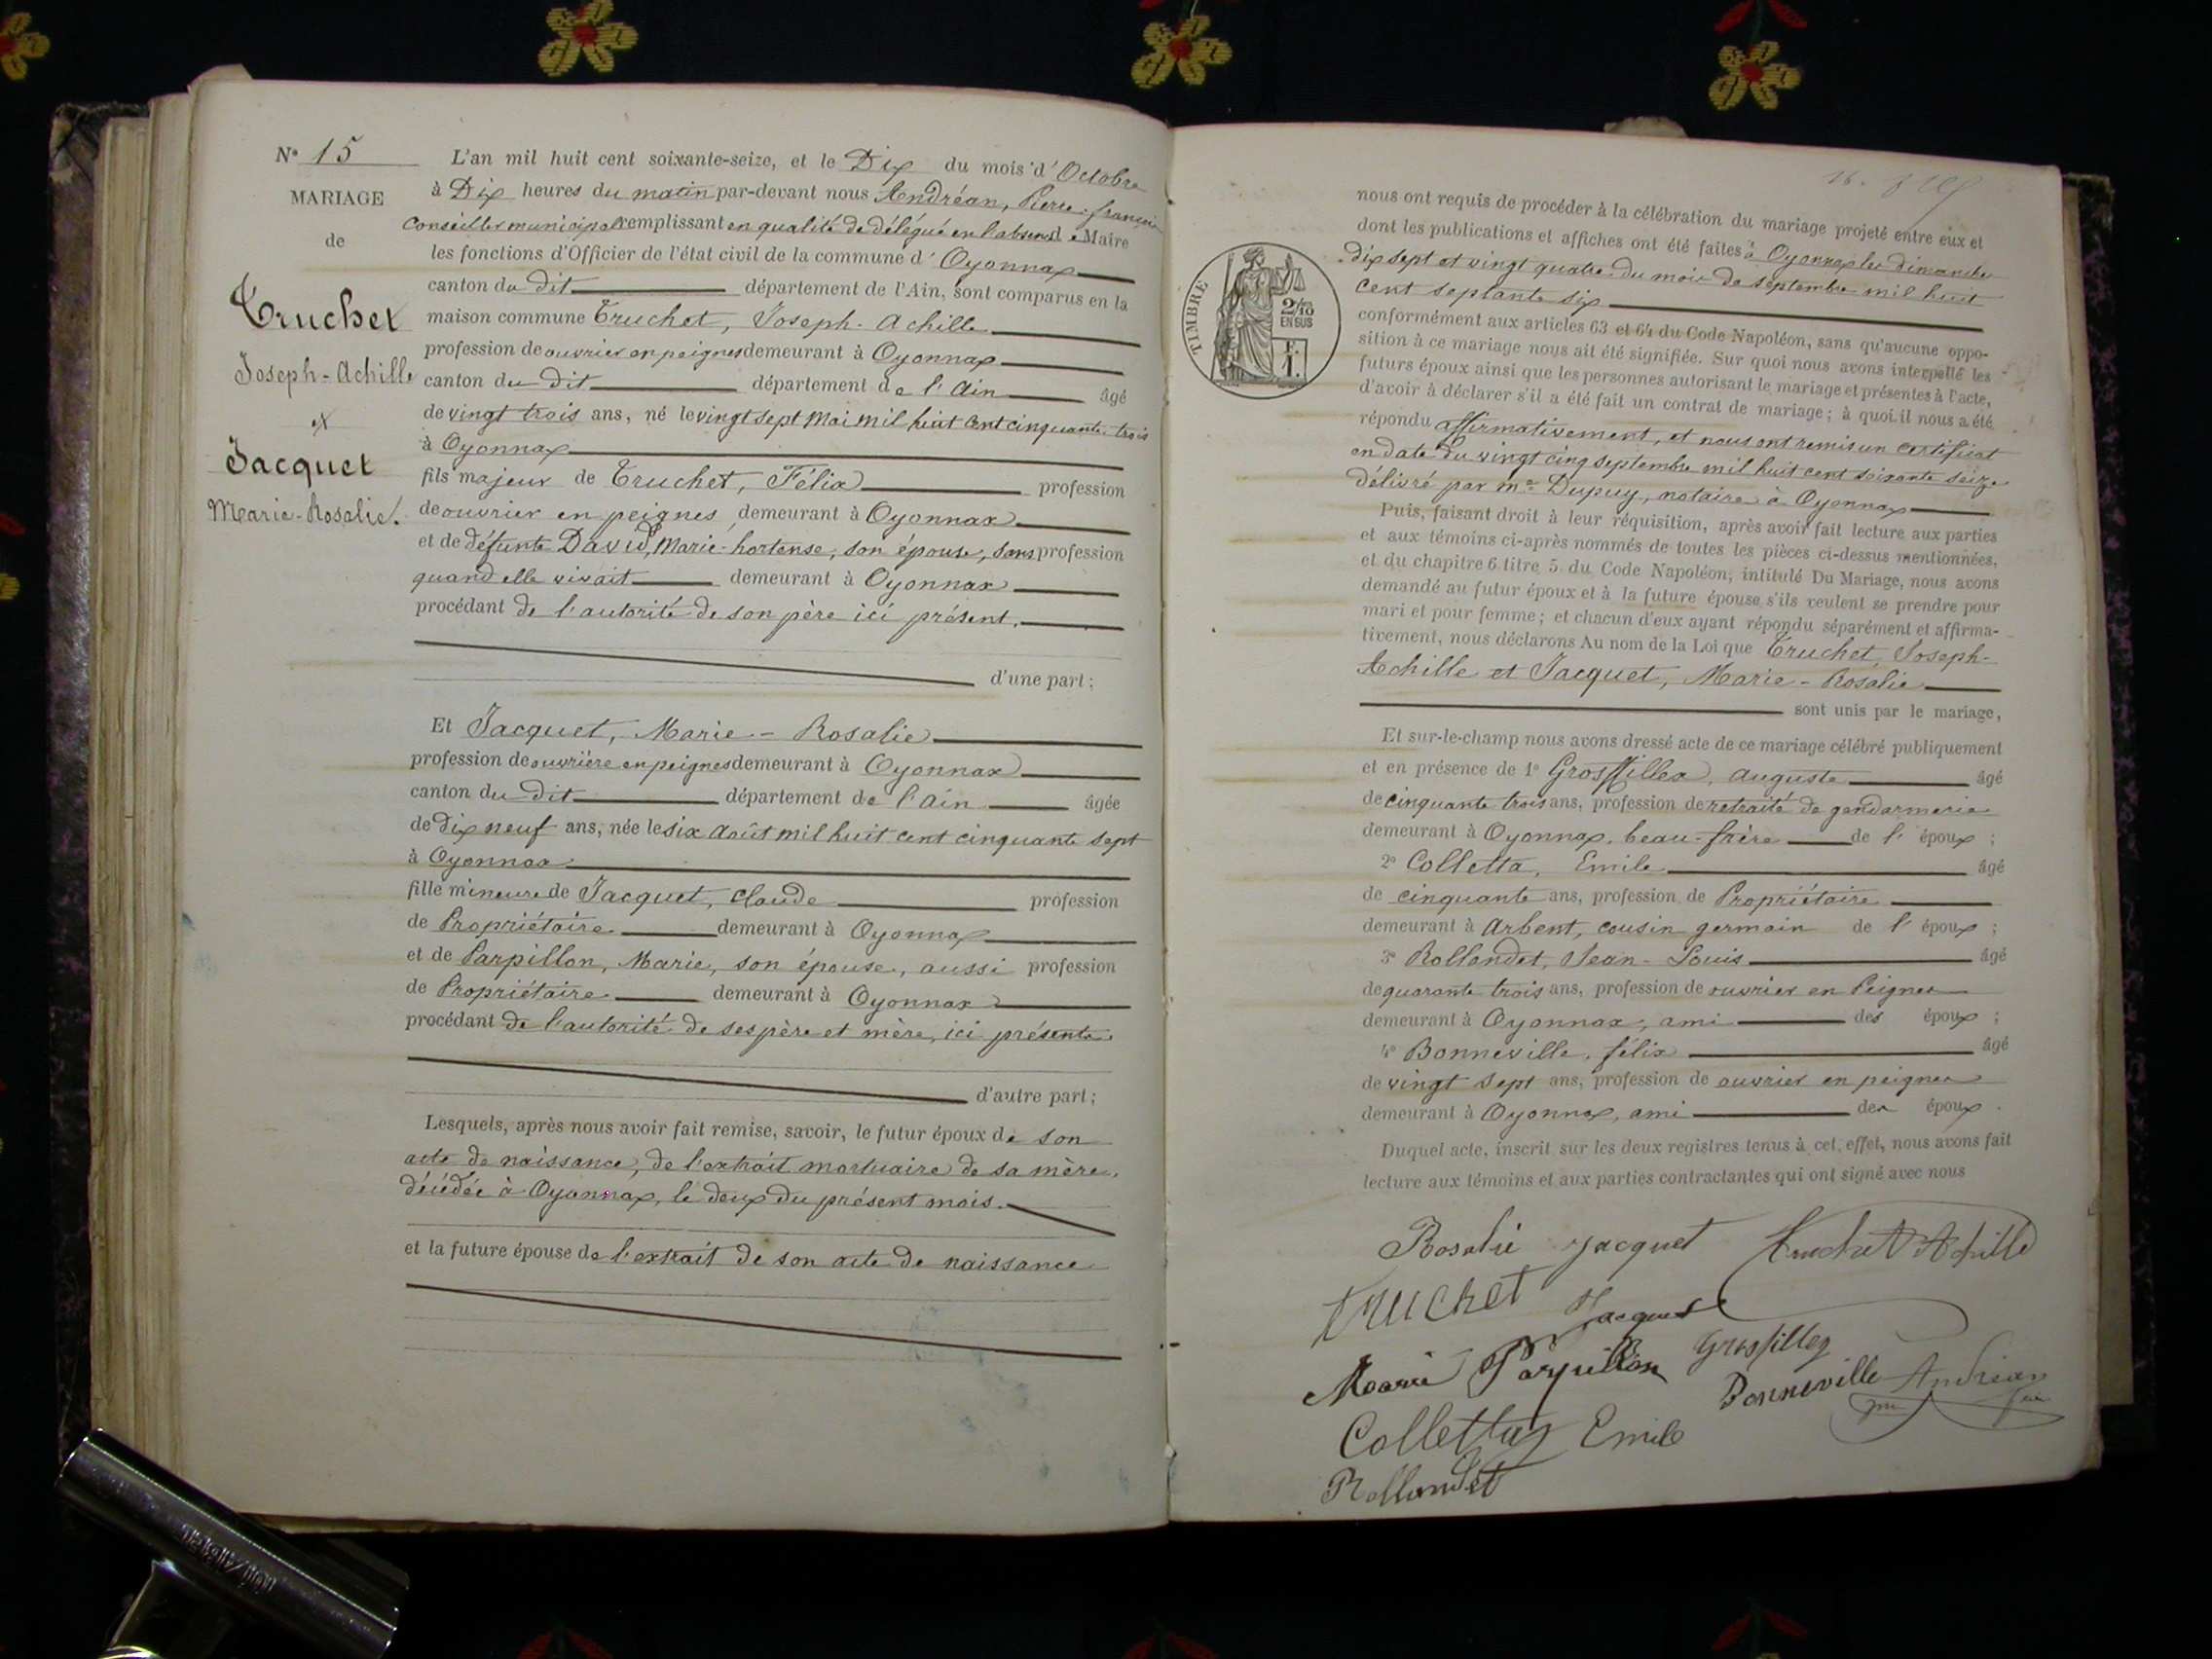 N° 15
MARIAGE
de
Truchet
Joseph-Achille
et
Jacquet
Marie-Rosalie.
L'an mil huit cent soixante-seize, et le Dix du mois d'Octobre
à Dix heures du matin par-devant nous Andréan, Pierre-françois
Conseiller municipal remplissant en qualité de délégué en l'absence de Maire
les fonctions d'Officier de l'état civil de la commune d'Oyonnax
canton du dit département de l'Ain, sont comparus en la
maison commune Truchet, Joseph-Achille
profession de ouvrier en peignes demeurant à Oyonnax
canton du dit département de l'Ain âgé
de vingt trois ans, né le vingt sept Mai mil huit cent cinquante-trois
à Oyonnax
fils majeur de Truchet, Félix profession
de ouvrier en peignes demeurant à Oyonnax
et de défunte David, Marie-hortense, son épouse, sans profession
quand elle vivait demeurant à Oyonnax
procédant de l'autorité de son père ici présent.
d'une part;
Et Jacquet, Marie-Rosalie
profession de ouvrière en peignes demeurant à Oyonnax
canton du dit département de l'Ain âgée
de dix neuf ans, née le six Août mil huit cent cinquante sept
à Oyonnax
fille mineure de Jacquet, Claude profession
de Propriétaire demeurant à Oyonnax
et de Parpillon, Marie, son épouse, aussi profession
de Propriétaire demeurant à Oyonnax
procédant de l'autorité de ses père et mère, ici présents.
d'autre part;
Lesquels, après nous avoir fait remise, savoir, le futur époux de son
acte de naissance, de l'extrait mortuaire de sa mère,
décédée à Oyonnax, le deux du présent mois.
et la future épouse de l'extrait de son acte de naissance
TIMBRE
2/10
EN SUS
F.
1.
nous ont requis de procéder à la célébration du mariage projeté entre eux et
dont les publications et affiches ont été faites à Oyonnax les dimanches
dix sept et vingt quatre du mois de septembre mil huit
cent septante six
conformément aux articles 63 et 64 du Code Napoléon, sans qu'aucune oppo-
sition à ce mariage nous ait été signifiée. Sur quoi nous avons interpellé les
futurs époux ainsi que les personnes autorisant le mariage et présentes à l'acte,
d'avoir à déclarer s'il a été fait un contrat de mariage; à quoi il nous a été
répondu affirmativement, et nous ont remis un certificat
en date du vingt cinq septembre mil huit cent soixante seize
délivré par me Dupuy, notaire à Oyonnax
Puis, faisant droit à leur réquisition, après avoir fait lecture aux parties
et aux témoins ci-après nommés de toutes les pièces ci-dessus mentionnées,
et du chapitre 6 titre 5 du Code Napoléon, intitulé Du Mariage, nous avons
demandé au futur époux et à la future épouse s'ils veulent se prendre pour
mari et pour femme; et chacun d'eux ayant répondu séparément et affirma-
tivement, nous déclarons Au nom de la Loi que Truchet, Joseph-
Achille et Jacquet, Marie-Rosalie
sont unis par le mariage,
Et sur-le-champ nous avons dressé acte de ce mariage célébré publiquement
et en présence de 1° Grosfillex, auguste âgé
de cinquante trois ans, profession de retraité de gendarmerie
demeurant à Oyonnax, beau-frère de l'époux;
2° Colletta, Emile âgé
de cinquante ans, profession de Propriétaire
demeurant à Arbent, cousin germain de l'époux;
3° Rollandet, Jean-Louis âgé
de quarante trois ans, profession de ouvrier en Peignes
demeurant à Oyonnax, ami des époux;
4° Bonneville, félix âgé
de vingt sept ans, profession de ouvrier en peignes
demeurant à Oyonnax, ami des époux.
Duquel acte, inscrit sur les deux registres tenus à cet effet, nous avons fait
lecture aux témoins et aux parties contractantes qui ont signé avec nous
Rosalie Jacquet Truchet Achille
truchet Jacquet
Marie Parpillon Grosfillex
Bonneville Andréan
Collettaz Emile
Rollandet